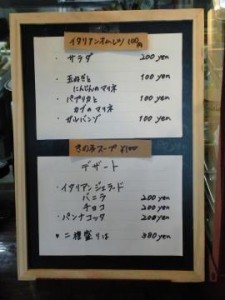 イタリアンオムレツ 100yen
・サラダ 200 yen
・玉ねぎと
にんじんのマリネ 100 yen
・パプリカと
カブのマリネ 100 yen
・ガルバンゾ 100 yen
きのこスープ ¥100
デザート
・イタリアンジェラード
バニラ 200 yen
チョコ 200 yen
・パンナコッタ 200 yen
* 二種盛りは 300 yen